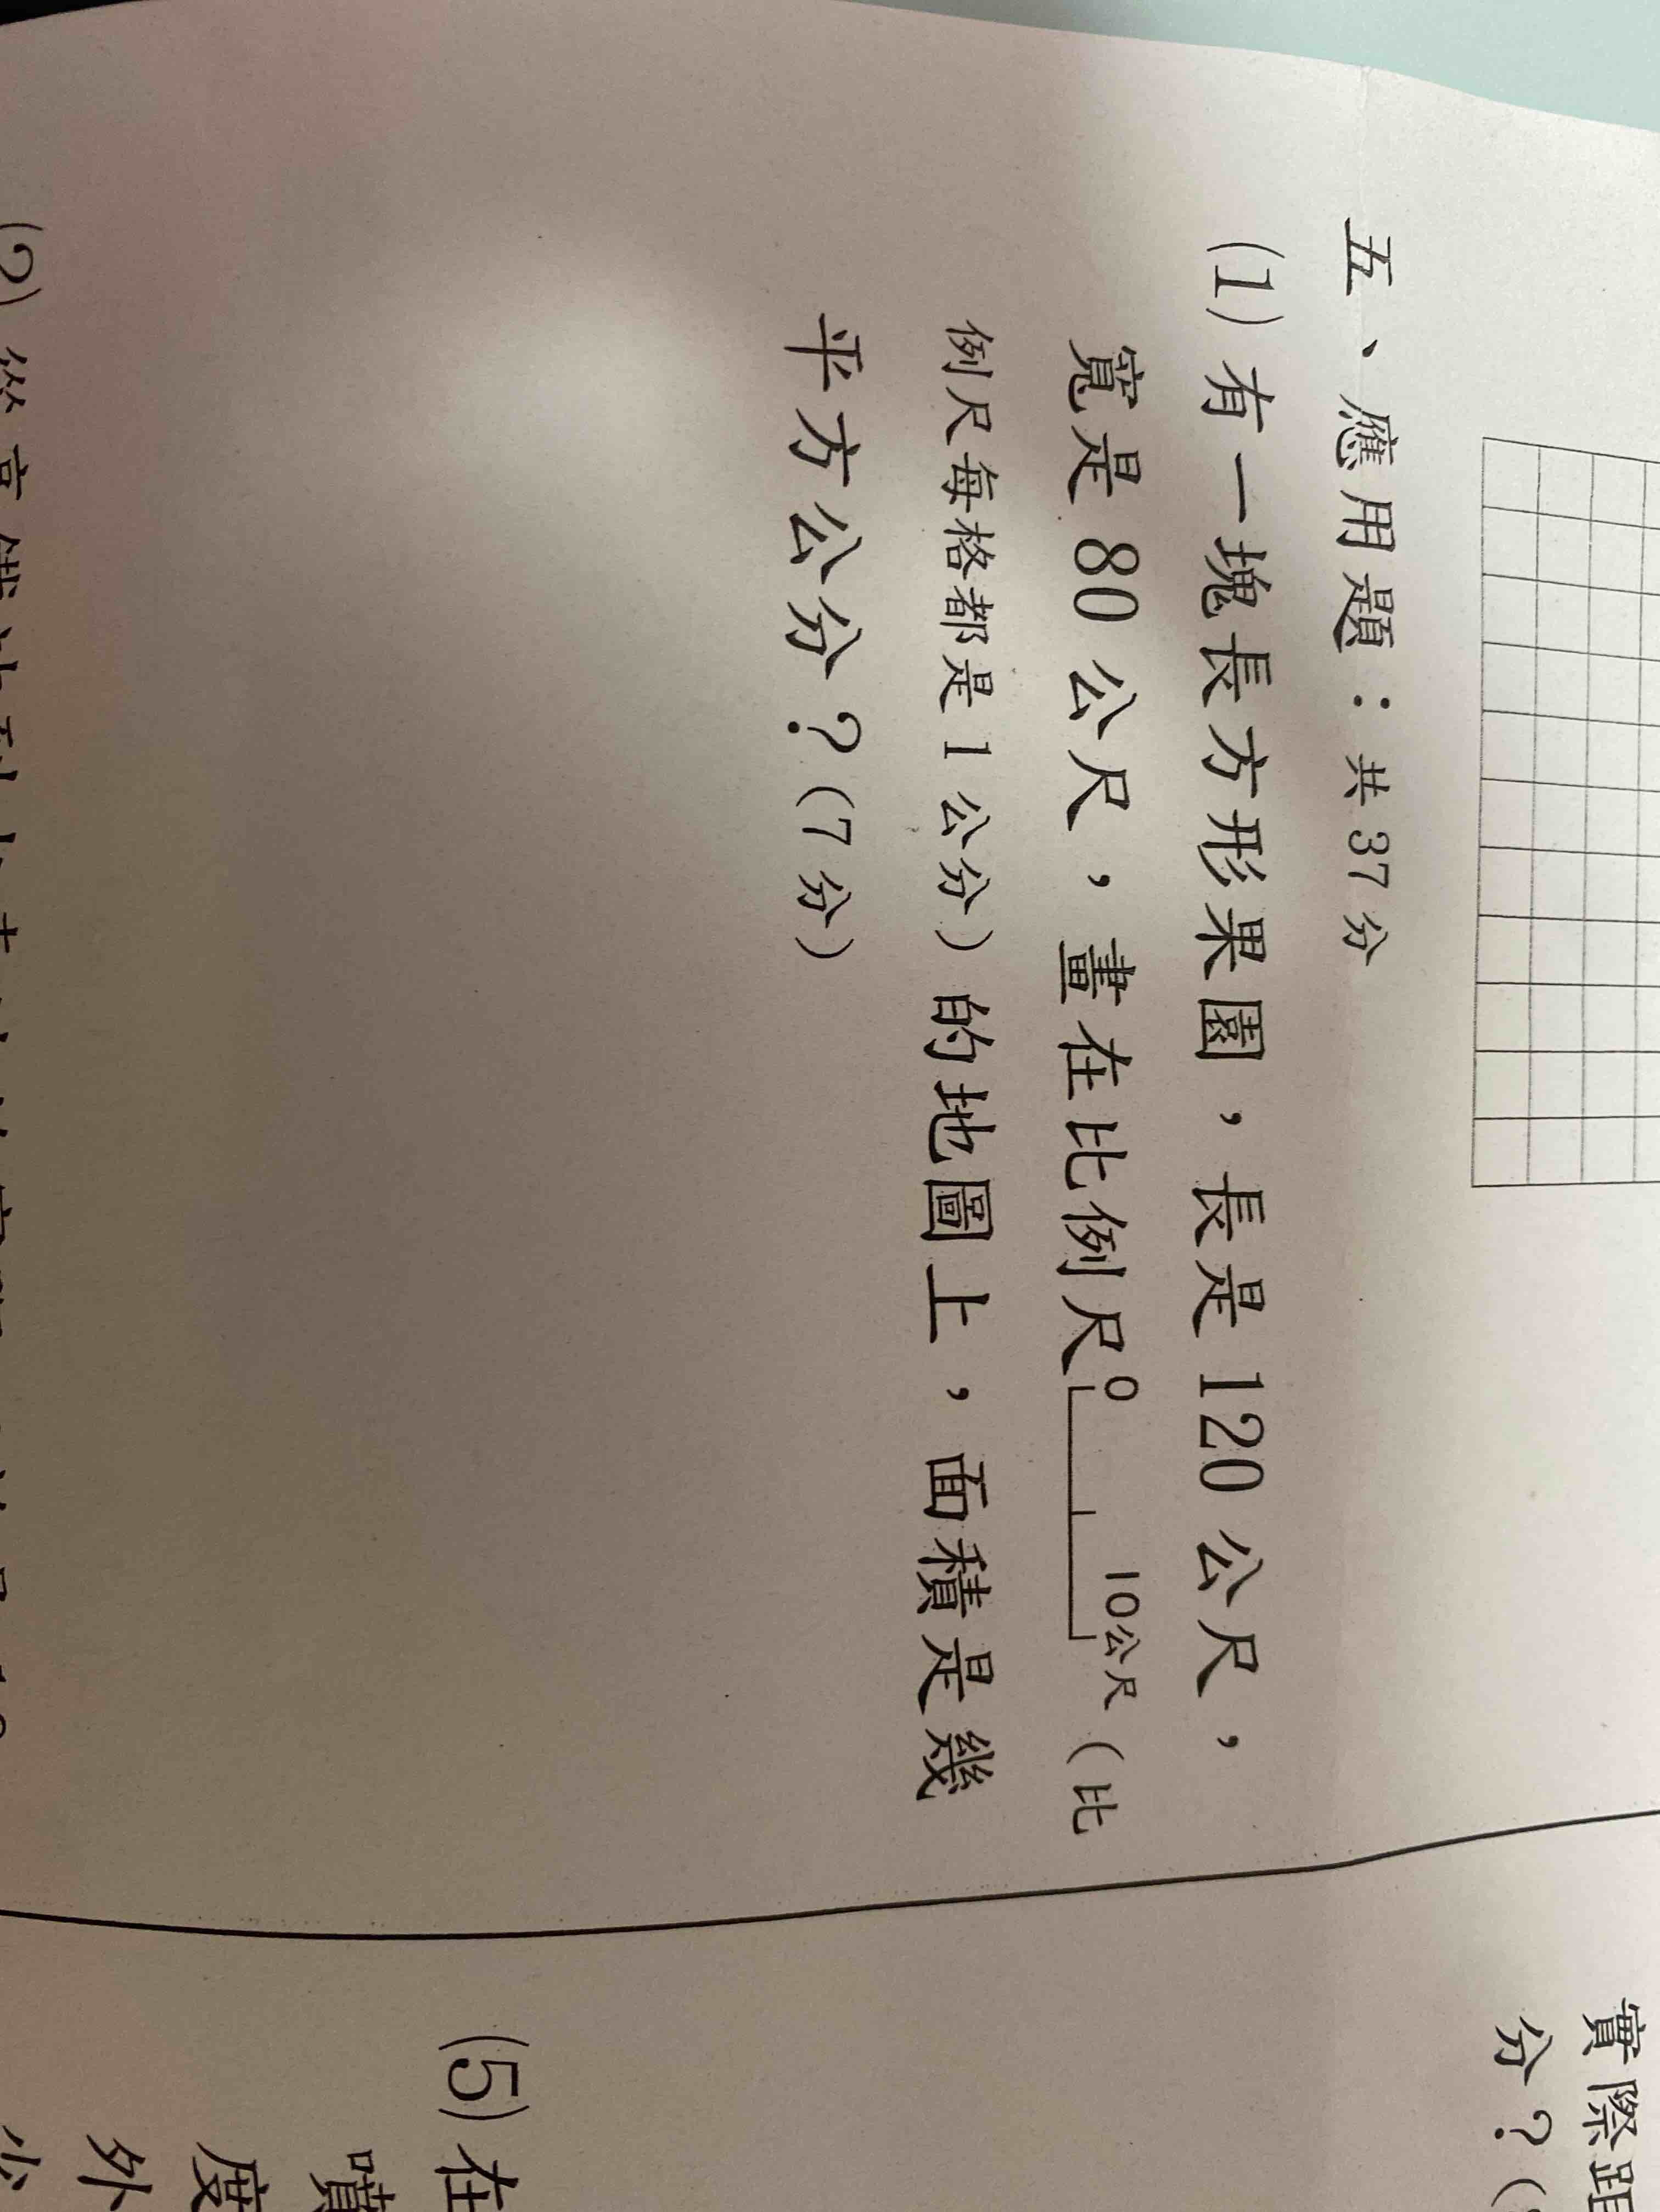 五、應用題：共37分
(1)有一塊長方形果園，長是120公尺，
寬是80公尺，畫在比例尺0 10公尺（比
例尺每格都是1公分）的地圖上，面積是幾
平方公分？(7分)
(2)從高
實際距
分？(
(5)在
噴
度
外
少